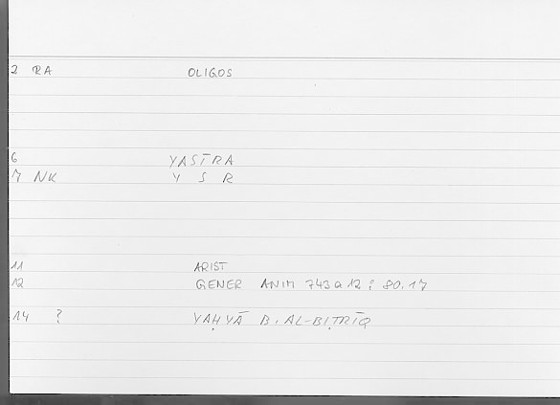 2 RA OLIGOS
6 YASĪRA
7 NK Y S R
11 ARIST
12 GENER ANIM 743 a 12 ; 80.17
14 ? YAḤYĀ B. AL-BIṬRĪQ